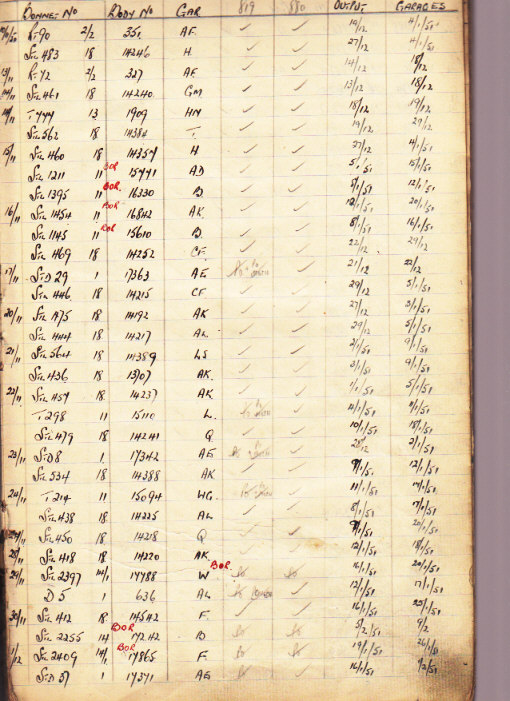 BONNET No BODY No GAR 819 880 OUTPUT GARAGES
RT 90 2/2 351 AF ✓ ✓ 19/12 4/1/51
STL 483 18 14246 H ✓ ✓ 27/12 4/1/51
13/11 RT 72 2/2 327 AF ✓ ✓ 14/12 18/12
14/11 STL 461 18 14240 GM ✓ ✓ 13/12 18/12
14/11 T 444 13 1909 HN ✓ ✓ 18/12 19/12
STL 562 18 14384 T. ✓ ✓ 19/12 29/12
15/11 STL 460 18 14354 H ✓ ✓ 27/12 4/1/51
STL 1211 11 BOR 15441 AD ✓ ✓ 5/1/51 15/1/51
STL 1395 11 BOR 16330 B ✓ ✓ 9/1/51 12/1/51
16/11 STL 1454 11 BOR 16842 AK ✓ ✓ 12/1/51 20/1/51
STL 1145 11 BOR 15610 B ✓ ✓ 8/1/51 16/1/51
STL 469 18 14252 CF ✓ ✓ 22/12 29/12
17/11 STD 29 1 17363 AE ✓ 21/12 22/12
STL 446 18 14215 CF ✓ ✓ 29/12 3/1/51
20/11 STL 475 18 14192 AK ✓ ✓ 27/12 3/1/51
STL 444 18 14217 AL ✓ ✓ 29/12 5/1/51
21/11 STL 564 18 14389 LS ✓ ✓ 2/1/51 9/1/51
STL 436 18 1307 AK ✓ ✓ 3/1/51 9/1/51
22/11 STL 457 18 14237 AK ✓ ✓ 1/1/51 5/1/51
T 298 11 15110 L ✓ 11/1/51
STL 479 18 14241 Q ✓ ✓ 10/1/51 18/1/51
23/11 STD 8 1 17342 AE ✓ 28/12 2/1/51
STL 534 18 14388 AK ✓ ✓ 9/1/5. 12/1/51
24/11 T 214 11 15094 WG ✓ 11/1/51
STL 438 18 14225 AL ✓ ✓ 8/1/51
STL 450 18 14218 Q ✓ ✓ 9/1/51 20/1/51
28/11 STL 418 18 14220 AK ✓ ✓ 12/1/51 18/1/51
29/11 STL 2397 14/1 17488 BOR W to to 16/1/51 20/1/51
D 5 1 636 AL ✓ 12/1/51 17/1/51
30/11 STL 412 18 14542 F ✓ ✓ 16/1/51 25/1/51
STL 2255 14 BOR 17242 B to to 5/2/51 9/2
1/12 STL 2409 14/1 BOR 17865 F to to 19/1/51 26/1/51
STD 37 1 17371 AE ✓ ✓ 16/1/51 9/2/51